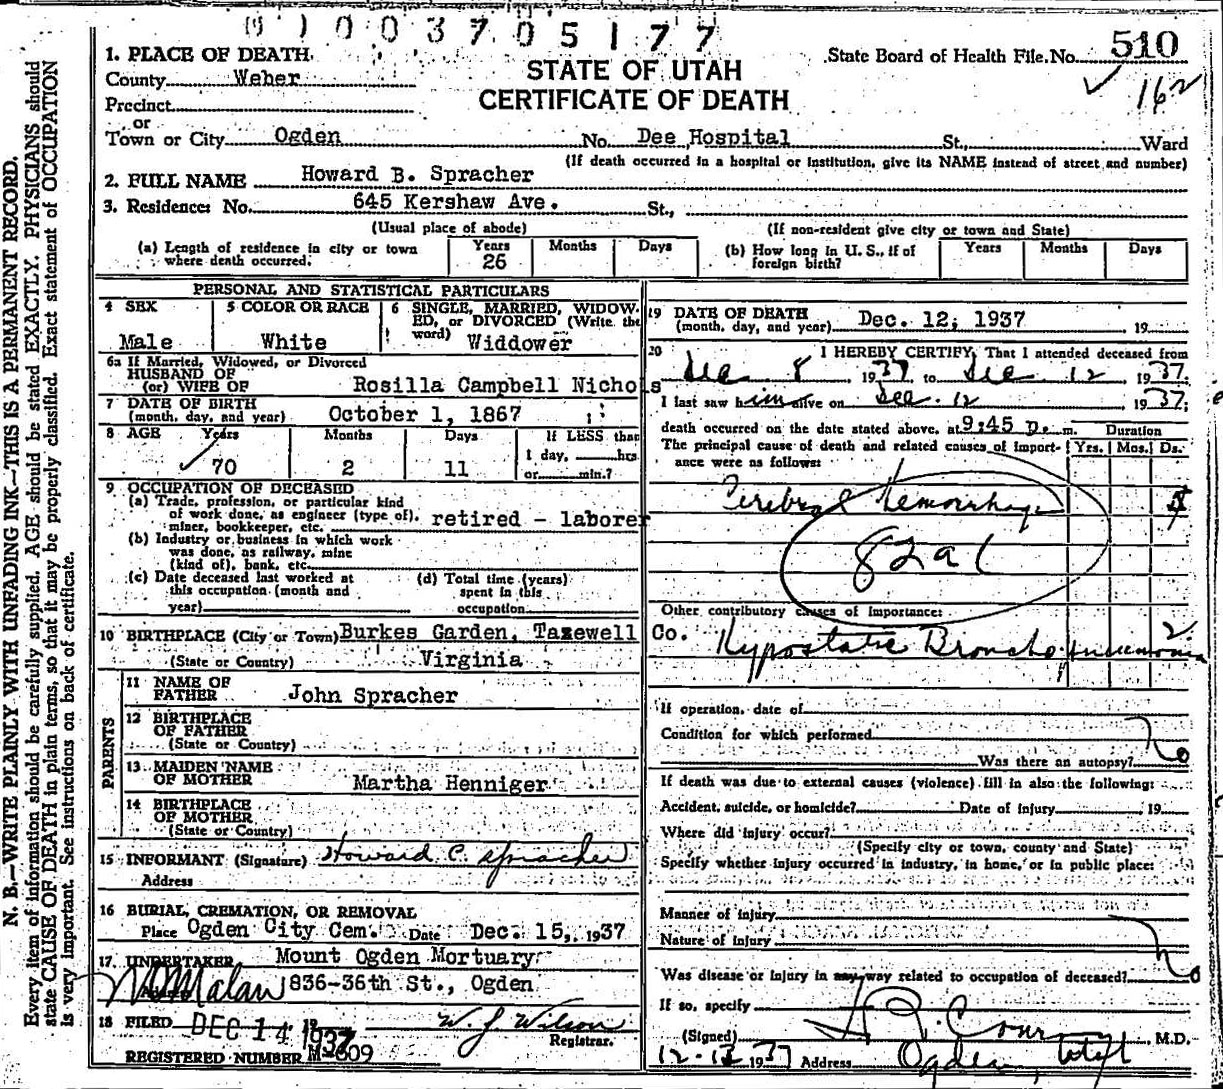 1003705177
1. PLACE OF DEATH
County Weber
Precinct
or
Town or City Ogden
STATE OF UTAH
CERTIFICATE OF DEATH
State Board of Health File No. 510
162
No. Dee Hospital St., Ward
(If death occurred in a hospital or institution, give its NAME instead of street and number)
2. FULL NAME Howard B. Spracher
3. Residence: No. 645 Kershaw Ave. St.,
(Usual place of abode) (If non-resident give city or town and State)
(a) Length of residence in city or town where death occurred. Years 26 Months Days
(b) How long in U. S., if of foreign birth? Years Months Days
PERSONAL AND STATISTICAL PARTICULARS
4 SEX Male
5 COLOR OR RACE White
6 SINGLE, MARRIED, WIDOWED, or DIVORCED (Write the word) Widdower
6a If Married, Widowed, or Divorced
HUSBAND OF
(or) WIFE OF Rosilla Campbell Nichols
7 DATE OF BIRTH
(month, day, and year) October 1, 1867
8 AGE Years 70 Months 2 Days 11 If LESS than 1 day, hrs or min.?
9 OCCUPATION OF DECEASED
(a) Trade, profession, or particular kind
of work done, as engineer (type of),
miner, bookkeeper, etc. retired - laborer
(b) Industry or business in which work
was done, as railway, mine
(kind of), bank, etc.
(c) Date deceased last worked at
this occupation (month and
year)
(d) Total time (years)
spent in this
occupation
10 BIRTHPLACE (City or Town) Burkes Garden, Tazewell Co.
(State or Country) Virginia
PARENTS
11 NAME OF
FATHER John Spracher
12 BIRTHPLACE
OF FATHER
(State or Country)
13 MAIDEN NAME
OF MOTHER Martha Henniger
14 BIRTHPLACE
OF MOTHER
(State or Country)
15 INFORMANT (Signature) Howard C. Spracher
Address
16 BURIAL, CREMATION, OR REMOVAL
Place Ogden City Cem. Date Dec. 15, 1937
17 UNDERTAKER Mount Ogden Mortuary
Malan 836-36th St., Ogden
18 FILED DEC 14 1937 W. J. Wilson
Registrar.
REGISTERED NUMBER M-609
19 DATE OF DEATH
(month, day, and year) Dec. 12, 1937 19
20 I HEREBY CERTIFY, That I attended deceased from
Dec 8 1937 to Dec 12 1937.
I last saw him alive on Dec. 12 1937;
death occurred on the date stated above, at 9:45 p. m. Duration
The principal cause of death and related causes of importance were as follows: Yrs. Mos. Ds.
Cerebral Hemorrhage
82a
Other contributory causes of importance:
Hypostatic Broncho pneumonia 2
If operation, date of
Condition for which performed
Was there an autopsy? No
If death was due to external causes (violence) fill in also the following:
Accident, suicide, or homicide? Date of injury 19
Where did injury occur?
(Specify city or town, county and State)
Specify whether injury occurred in industry, in home, or in public place:
Manner of injury
Nature of injury
Was disease or injury in any way related to occupation of deceased? No
If so, specify
(Signed) M.D.
1937 Address Ogden, Utah
N. B.—WRITE PLAINLY WITH UNFADING INK—THIS IS A PERMANENT RECORD.
Every item of information should be carefully supplied. AGE should be stated EXACTLY. PHYSICIANS should
state CAUSE OF DEATH in plain terms, so that it may be properly classified. Exact statement of OCCUPATION
is very important. See instructions on back of certificate.